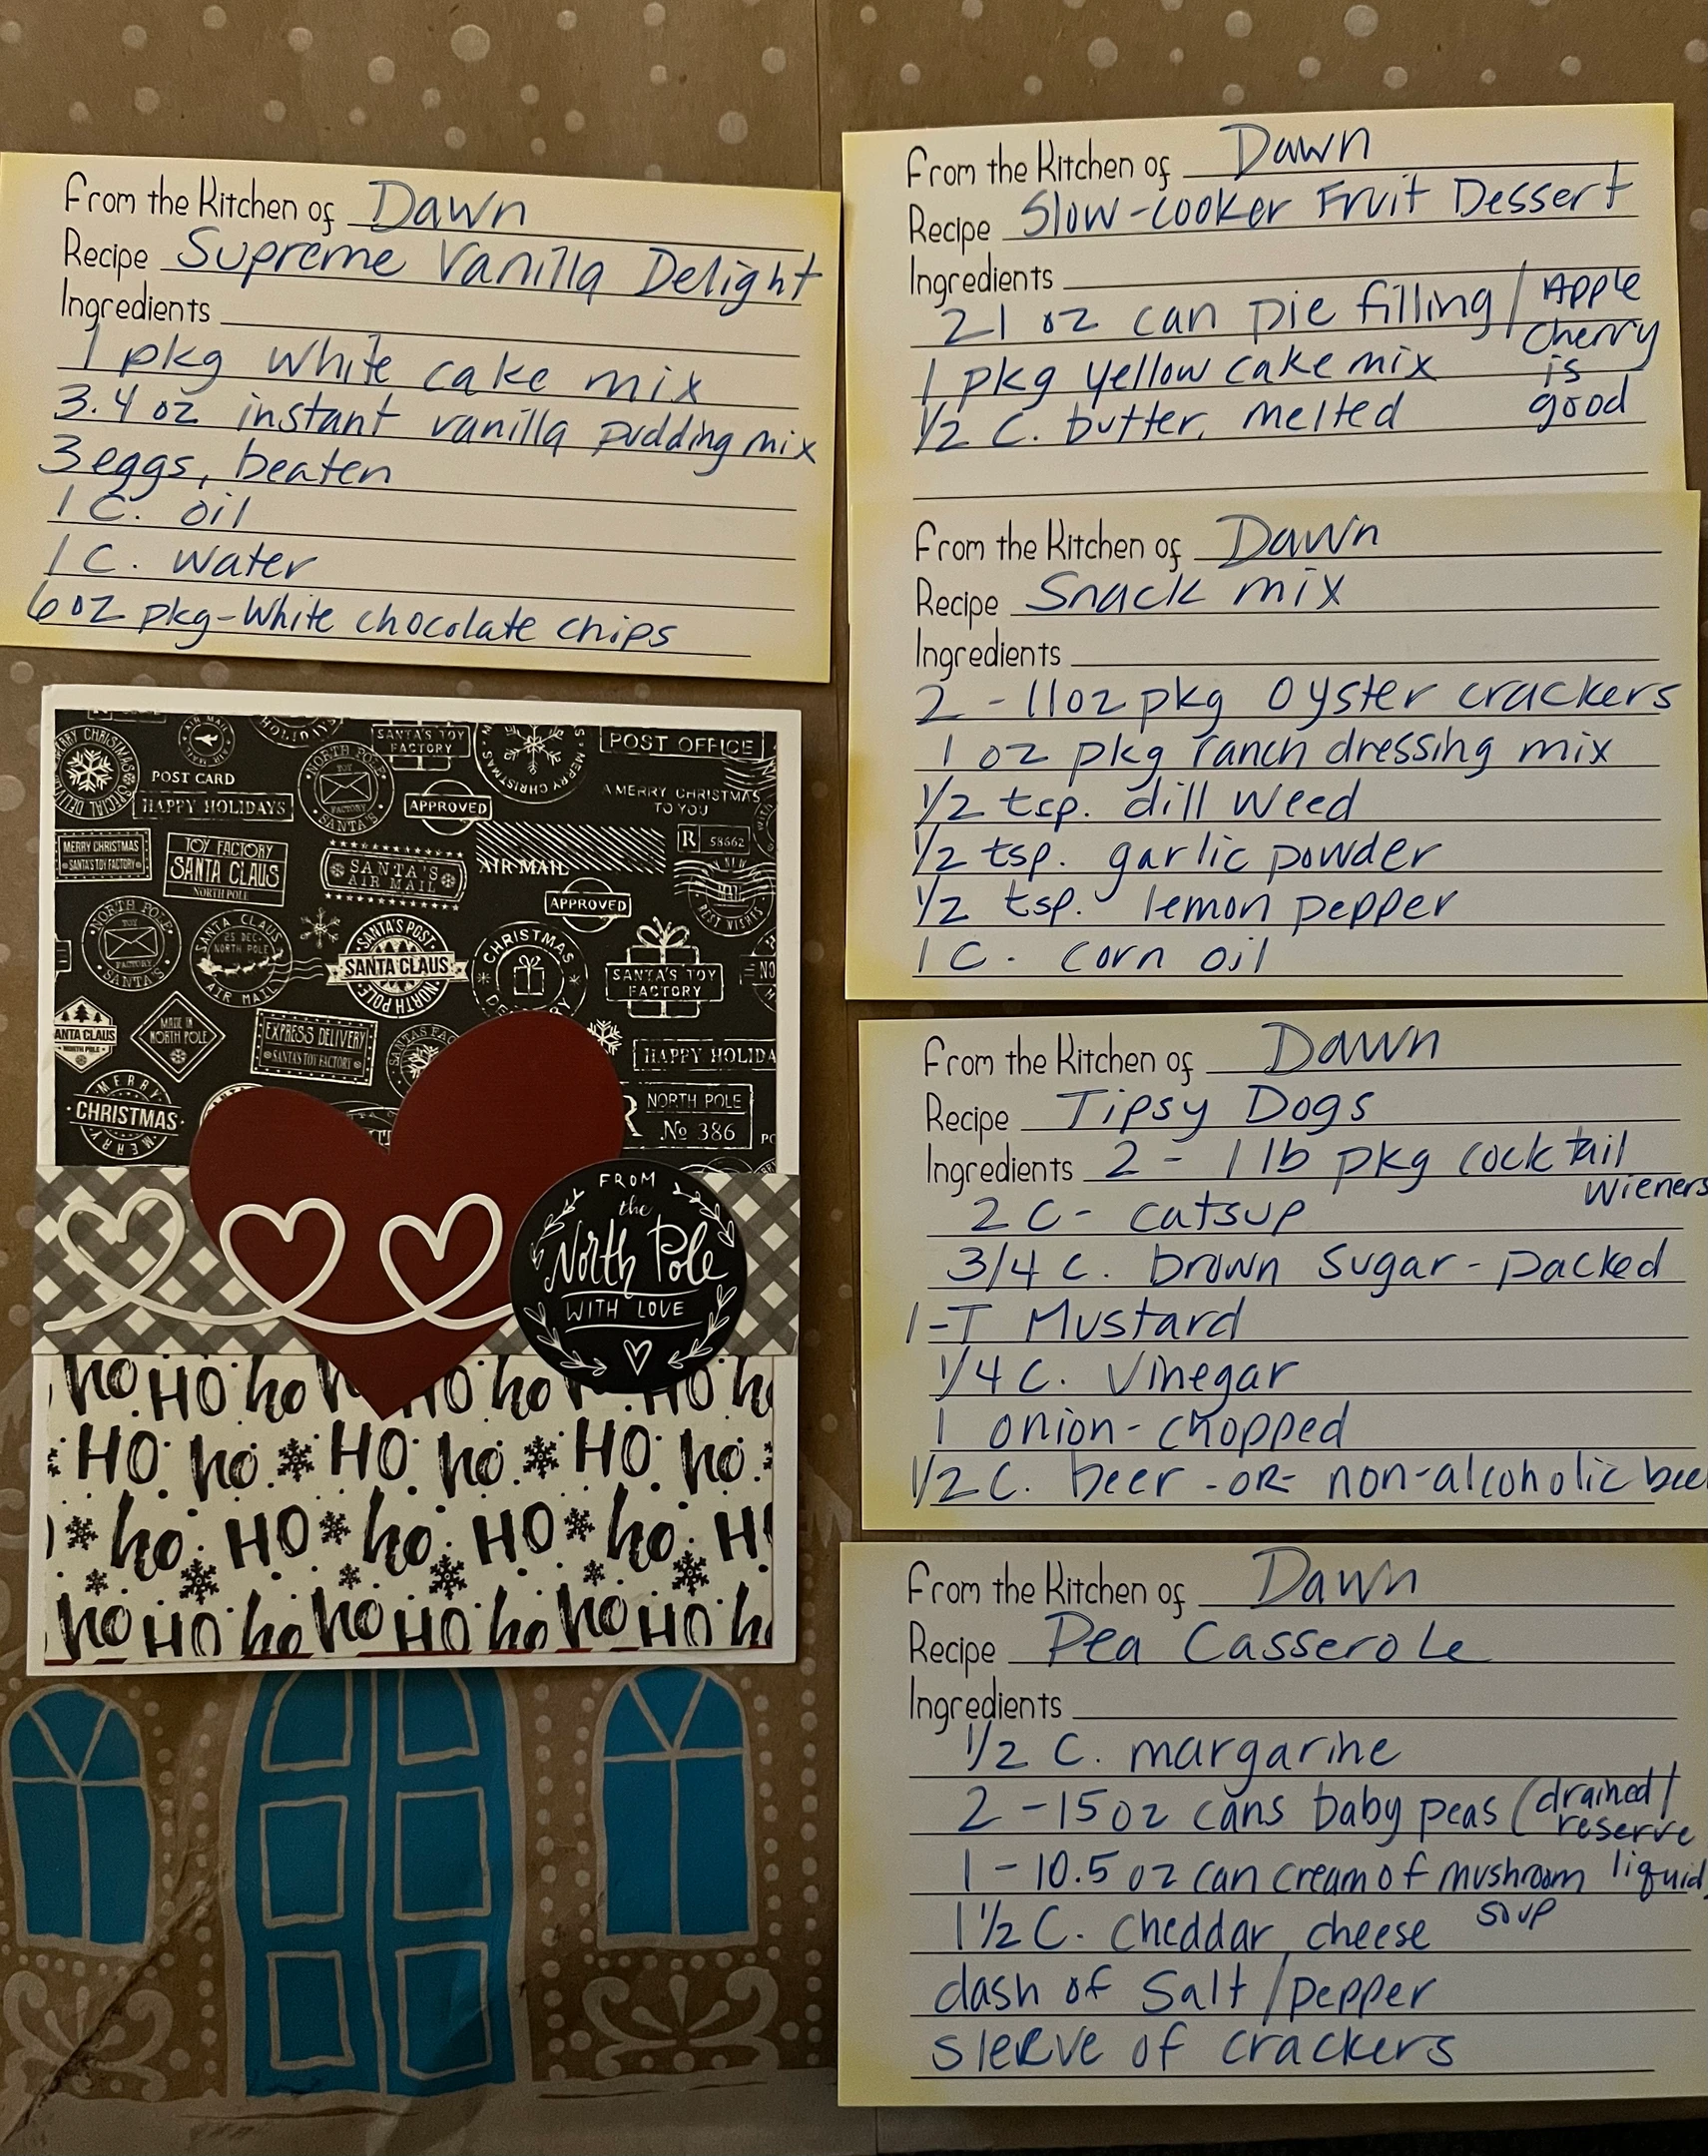 From the Kitchen of Dawn
Recipe Supreme Vanilla Delight
Ingredients
1 pkg white cake mix
3.4 oz instant vanilla pudding mix
3 eggs, beaten
1 C. oil
1 C. water
6 oz pkg-White chocolate chips
From the Kitchen of Dawn
Recipe Slow-cooker Fruit Dessert
Ingredients
21 oz can pie filling / Apple
Cherry
1 pkg yellow cake mix is
1/2 C. butter, melted good
From the Kitchen of Dawn
Recipe Snack mix
Ingredients
2 - 11oz pkg oyster crackers
1 oz pkg ranch dressing mix
1/2 tsp. dill weed
1/2 tsp. garlic powder
1/2 tsp. lemon pepper
1 C. corn oil
From the Kitchen of Dawn
Recipe Tipsy Dogs
Ingredients 2 - 1 lb pkg cocktail
wieners
2 C- catsup
3/4 C. brown sugar - packed
1-T Mustard
1/4 C. Vinegar
1 onion - chopped
1/2 C. beer -OR- non-alcoholic bee
From the Kitchen of Dawn
Recipe Pea Casserole
Ingredients
1/2 C. margarine
2 - 15 oz cans baby peas (drained/
reserve
1 - 10.5 oz can cream of mushroom liquid
soup
1 1/2 C. cheddar cheese
dash of salt/pepper
sleeve of crackers
MERRY CHRISTMAS
SPECIAL
AIR MAIL
SANTA'S TOY
FACTORY
MERRY CHRISTMAS
POST OFFICE
POST CARD
HAPPY HOLIDAYS
NORTH POLE
FACTORY
SANTA'S
APPROVED
A MERRY CHRISTMAS
TO YOU
MERRY CHRISTMAS
SANTA'S TOY FACTORY
TOY FACTORY
SANTA CLAUS
NORTH POLE
SANTA'S
AIR MAIL
AIR MAIL
R 58662
BEST WISHES
APPROVED
NORTH POLE
TOY
FACTORY
SANTA'S
SANTA CLAUS
25 DEC.
NORTH POLE
AIR MAIL
SANTA'S POST
SANTA CLAUS
NORTH POLE
CHRISTMAS
SANTA'S TOY
FACTORY
NO
ANTA CLAUS
NORTH POLE
MADE IN
NORTH POLE
EXPRESS DELIVERY
SANTA'S TOY FACTORY
SANTAS FAC
HAPPY HOLIDA
MERRY
CHRISTMAS
MERRY
R NORTH POLE
No 386
FROM
the
North Pole
WITH LOVE
ho HO ho HO ho HO h
HO ho HO ho HO ho
ho HO ho HO ho H
ho HO ho ho HO ho ho HO h